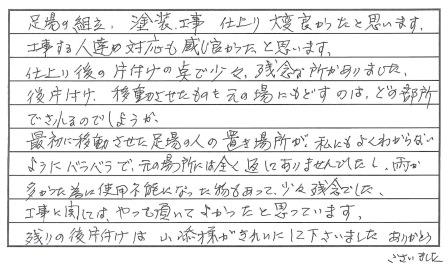 足場の組立、塗装工事 仕上り大変良かったと思います。
工事する人達の対応も感じ良かったと思います。
仕上り後の片付けの点で少々、残念な所がありました。
後片付け、移動させたものを元の場にもどすのは、どの部所
でされるのでしょうか。
最初に移動させた足場の人の置き場所が、私にもよくわからない
ようにバラバラで、元の場所には全く返にありませんでしたし、雨が
多かった為に使用不能になった物もあって、少々残念でした。
工事に関しては、やって頂いてよかったと思っています。
残りの後片付けは 山添様がきれいにして下さいました ありがとう
ございました